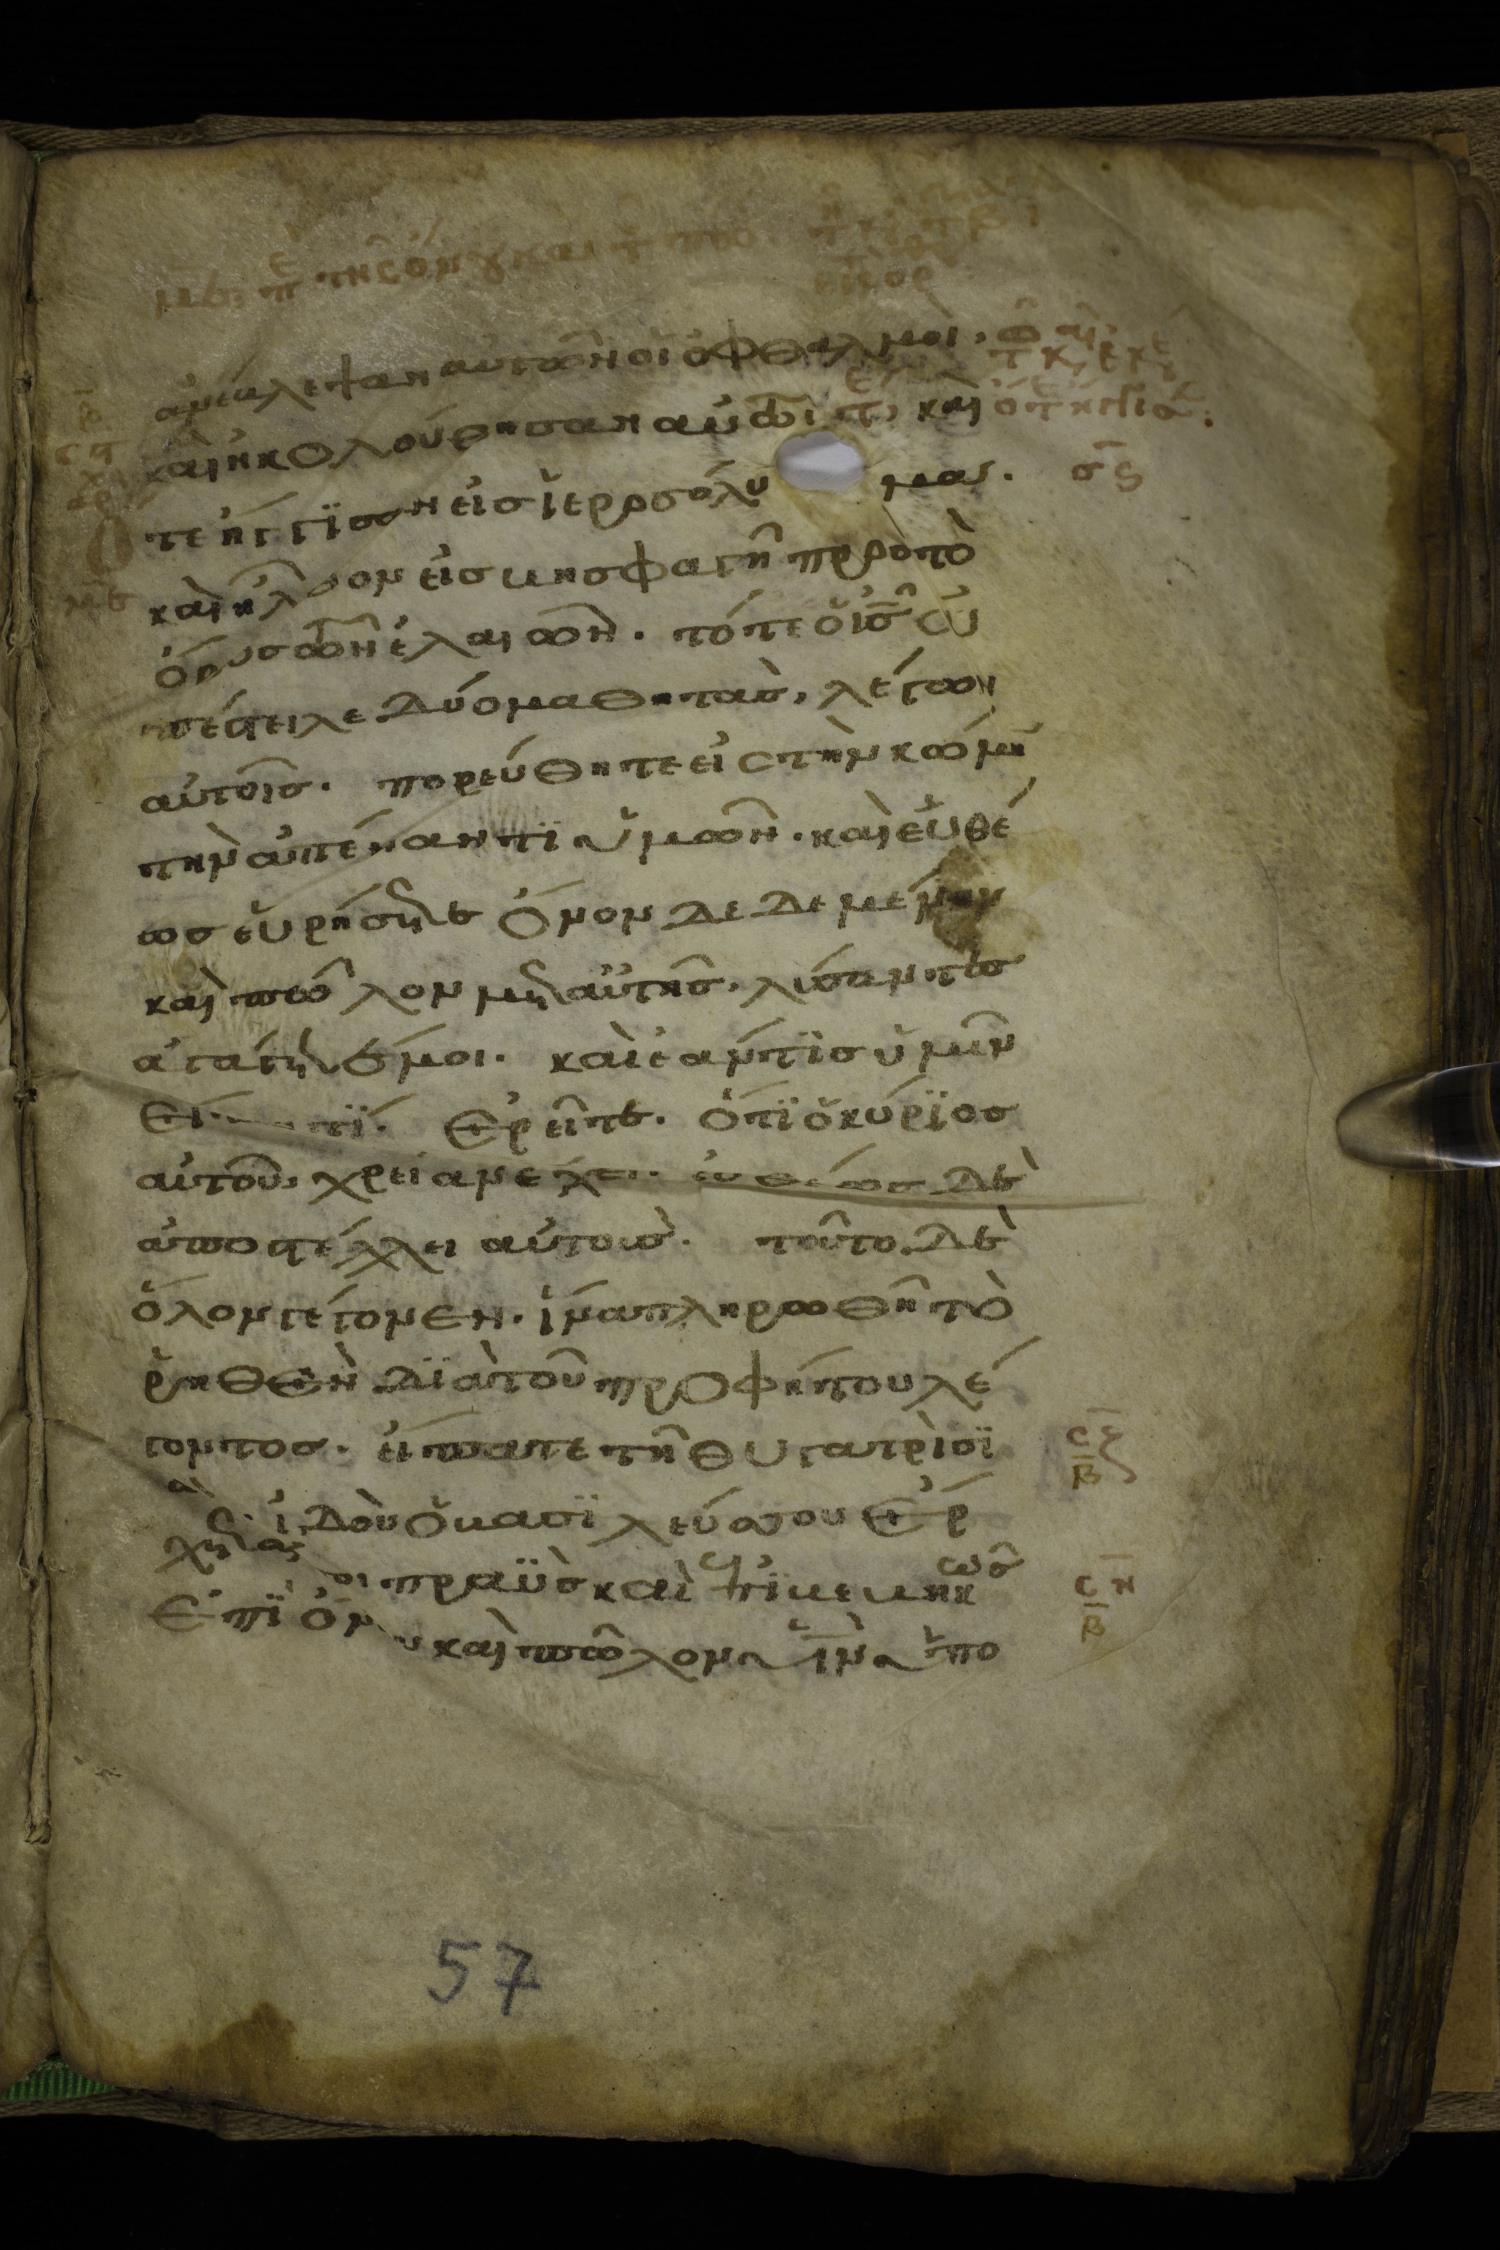 ἀνέβλεψαν αυτῶν οἱ ὀφθαλμοί,
καὶ ἠκολούθησαν αὐτῶι καὶ ὅ
τε ἤγγϊσαν εἰσ ἱεροσόλυμα.
καὶ ἦλθον εἰσ βησφαγῆ πρὸσ τὸ
ὄροσ τῶν ἐλαιῶν. τότε ὁ ι̅σ̅ ἀ
πέστειλε δύο μαθητὰσ, λέγων
αὐτοῖσ. πορεύθητε εἰσ τὴν κώμην
τὴν ἀπέναντϊ ὑμῶν. καὶ εὐθέ
ωσ εὑρήσετε ὄνον δεδεμένην
καὶ πῶλον μετ αὐτῆσ. λύσαντεσ
ἀγάγετέ μοι. καὶ ἐάν τϊσ ὑμῖν
εἴπη τϊ. ἐρεῖτε. ὅτϊ ὁ κύρϊοσ
αὐτοῦ χρείαν ἔχει. εὐθέωσ δὲ
ἀποστέλλει αὐτουσ. τοῦτο δὲ
ὅλον γέγονεν. ἵνα πληρωθῆ τὸ
ῥηθὲν δϊὰ τοῦ προφήτου λέ
γοντοσ. εἴπατε τῆ θυγατρὶ σϊ
ὼν. ἰδοὺ ὁ βασϊλεύσ σου ἔρ
χεταί σοι πραῢσ καὶ ἐπϊβεβηκὼσ
ἐπϊ ὄνον καὶ πῶλον υἱὸν ὑπο
σ̅ϛ
σ̅ζ
β̅
σ̅η
β̅
57